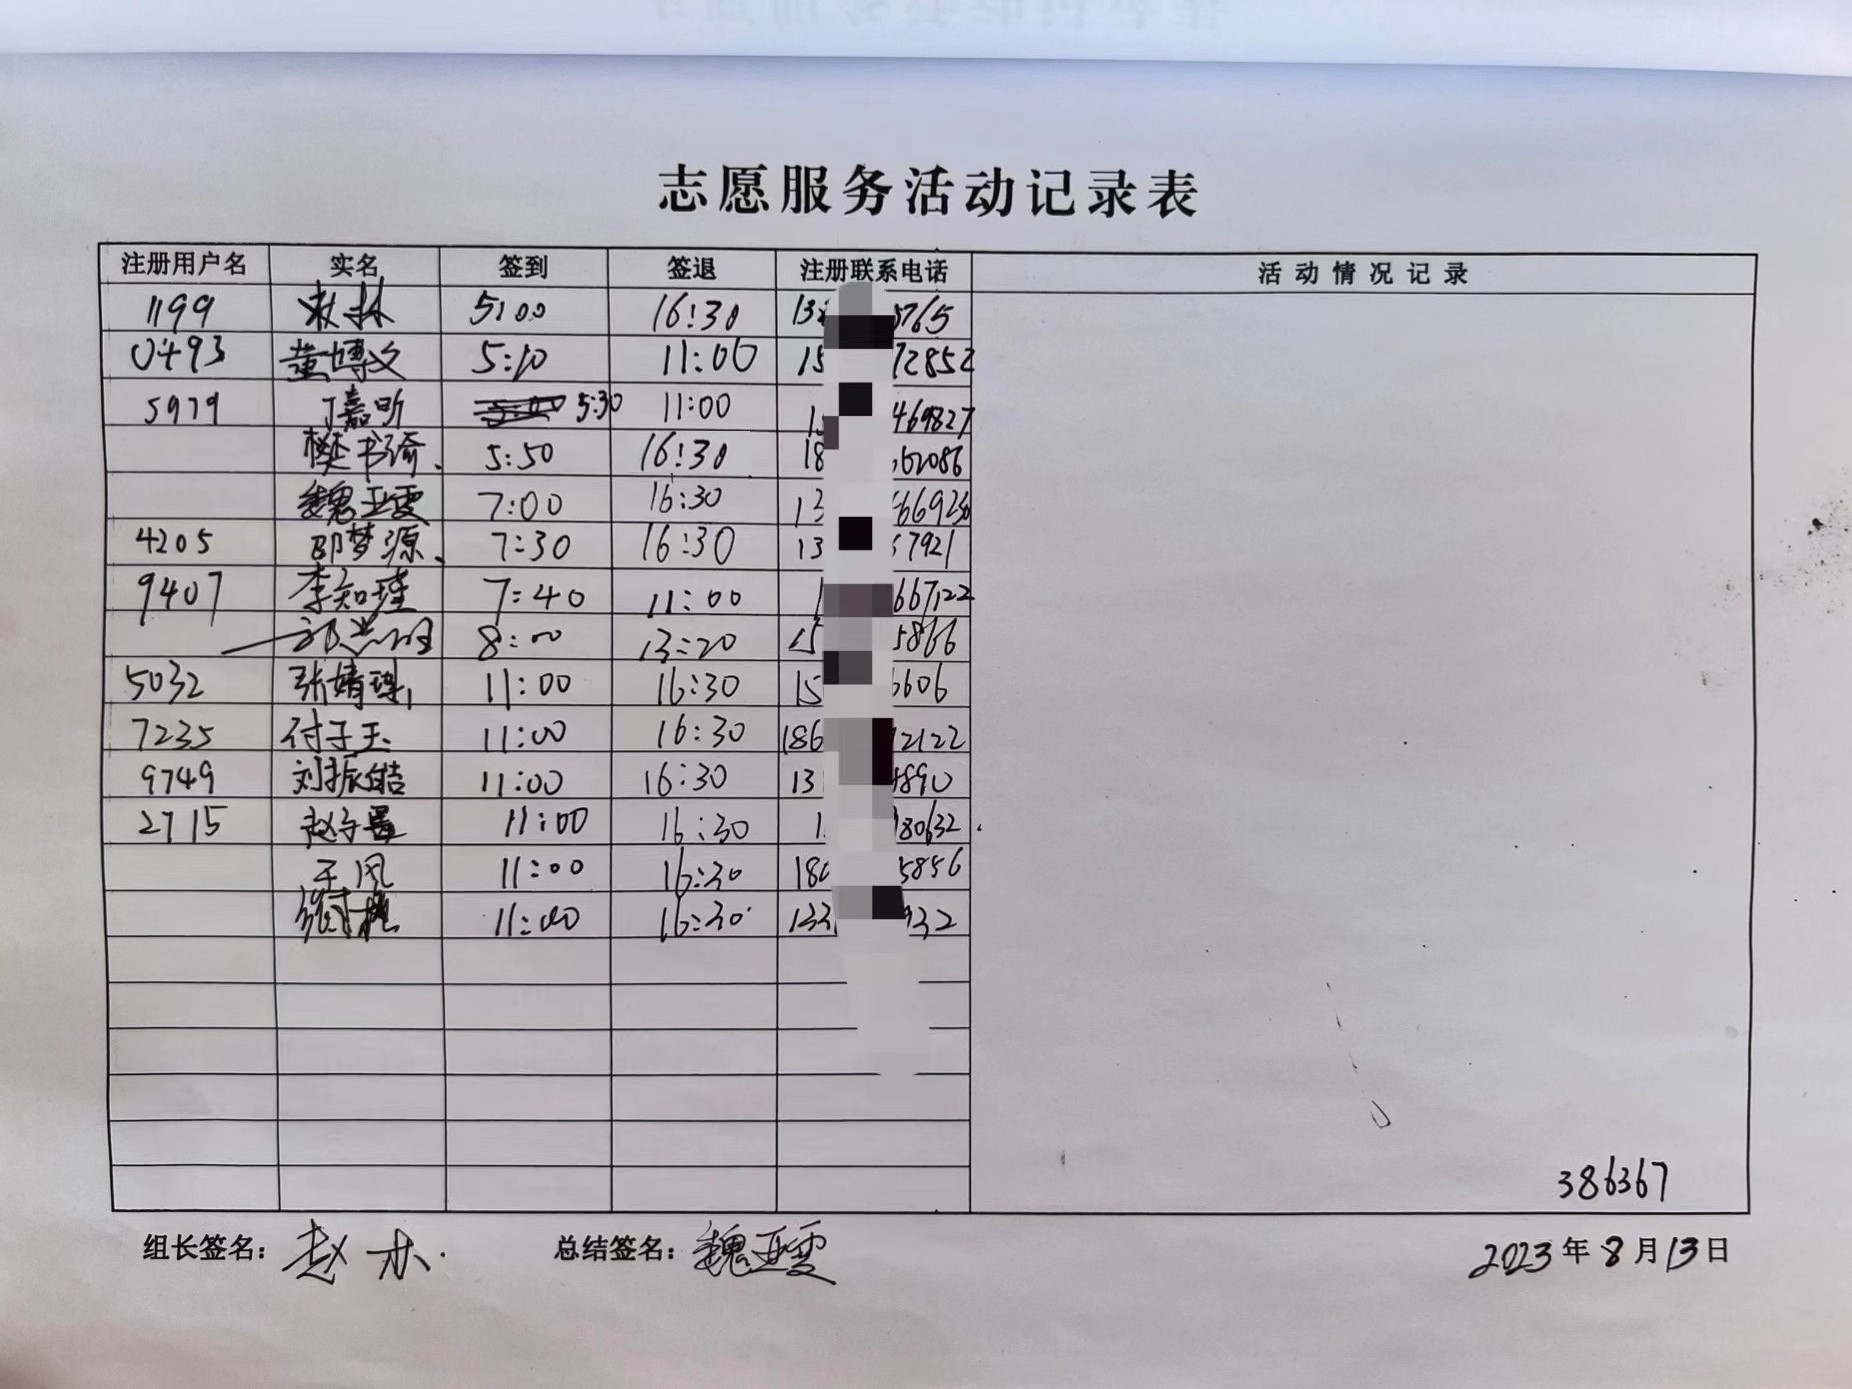 志愿服务活动记录表
注册用户名 实名 签到 签退 注册联系电话 活动情况记录
1199 5:00 16:30 13 5765
0493 董博文 5:10 11:00 15 72852
5979 丁嘉昕 5:30 11:00 1 469827
樊书谕 5:50 16:30 18 62086
魏亚雯 7:00 16:30 13 669250
4205 邵梦源 7:30 16:30 13 57921
9407 李知瑾 7:40 11:00 1 667122
8:00 13:20 15 5866
5032 张婧琪 11:00 16:30 15 6606
7235 付子玉 11:00 16:30 186 12122
9749 刘振皓 11:00 16:30 13 4890
2715 赵子墨 11:00 16:30 1 180632
于凤 11:00 16:30 18 5856
11:00 16:30 133 932
386367
组长签名： 赵 总结签名： 魏亚雯 2023年8月13日